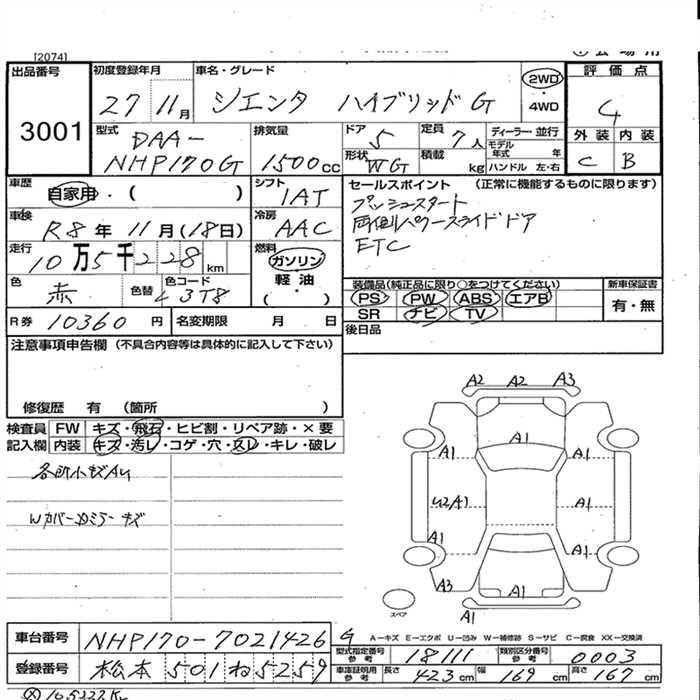 [2074]
出品番号 初度登録年月 車名・グレード 2WD 評価点
3001 27 11月 シエンタ ハイブリッドG ・ 4
4WD
型式 排気量 ドア 定員 ディーラー・並行 外装 内装
DAA- 5 7人 モデル年式 年 C B
NHP170G 1500cc 形状 WG 積載 kg ハンドル 左・右
車歴 自家用・( ) シフト 1AT セールスポイント (正常に機能するものに限ります)
車検 R8年 11月(18日) 冷房 AAC プッシュスタート
両側パワースライドドア
走行 10万5千228km 燃料 ガソリン ETC
軽油
色 赤 色替 色コード 3T8 (・) 装備品(純正品に限り○をつけてください) 新車保証書
PS PW ABS エアB 有・無
R券 10360円 名変期限 月 日 SR ナビ TV
注意事項申告欄 (不具合内容等は具体的に記入して下さい) 後日品
修復歴 有 (箇所 )
検査員 FW キズ・飛石・ヒビ割・リペア跡・×要
記入欄 内装 キズ・汚レ・コゲ・穴・スレ・キレ・破レ
各所小キズAU
Wカバー ドアミラーキズ
A2 A2 A3
A1
A1 A1
U2/A1 A1
A1 A1
A3 A1
A1
スペア
A-キズ E-エクボ U-凹み W-補修跡 S-サビ C-腐食 XX-交換済
車台番号 NHP170-7021426 G
型式指定番号 参考 18111 類別区分番号 参考 0003
登録番号 松本 501 ね 5259 車庫証明用 参考 長さ 423cm 幅 169cm 高さ 167cm